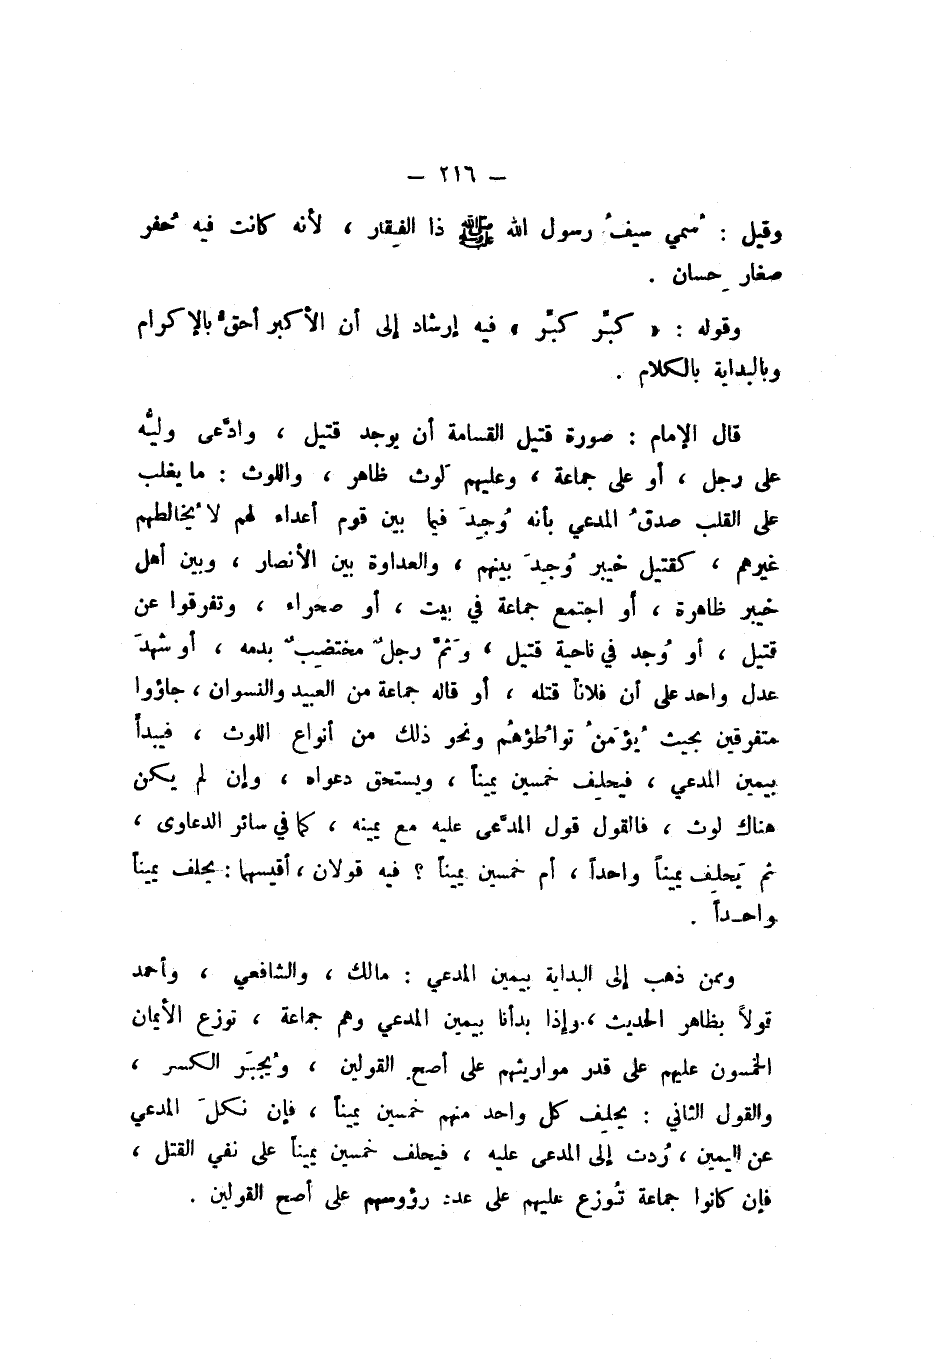 — ٢١٦ —
وقيل : سُمي سيفُ رسول الله ﷺ ذا الفِقار ، لأنه كانت فيه حُفر
صغار حِسان .
وقوله : « كبِّر كبِّر » فيه إرشاد إلى أن الأكبر أحقُّ بالإكرام
وبالبداية بالكلام .
قال الإمام : صورة قتيل القسامة أن يوجد قتيل ، وادَّعى وليُّه
على رجل ، أو على جماعة ، وعليهم لَوث ظاهر ، واللوث : ما يغلب
على القلب صدقُ المدعي بأنه وُجِدَ فيما بين قوم أعداء لهم لا يُخالطهم
غيرهم ، كقتيل خيبر وُجِدَ بينهم ، والعداوة بين الأنصار ، وبين أهل
خيبر ظاهرة ، أو اجتمع جماعة في بيت ، أو صحراء ، وتفرقوا عن
قتيل ، أو وُجد في ناحية قتيل ، وَثمَّ رجلٌ مختضِبٌ بدمه ، أو شهدَ
عدل واحد على أن فلاناً قتله ، أو قاله جماعة من العبيد والنسوان ، جاؤوا
متفرقين بحيث يُؤمَنُ تواطُؤهُم ونحو ذلك من أنواع اللوث ، فيبدأ
بيمين المدعي ، فيحلِف خمسين يميناً ، ويستحق دعواه ، وإن لم يكن
هناك لوث ، فالقول قول المدَّعى عليه مع يمينه ، كما في سائر الدعاوى ،
ثم يَحلِف يميناً واحداً ، أم خمسين يميناً ؟ فيه قولان ، أقيسهما : يحلف يميناً
واحـداً .
وممن ذهب إلى البداية بيمين المدعي : مالك ، والشافعي ، وأحمد
قولاً بظاهر الحديث ، وإذا بدأنا بيمين المدعي وهم جماعة ، توزع الأيمان
الخمسون عليهم على قدر مواريثهم على أصح القولين ، ويُجبَر الكسر ،
والقول الثاني : يحلِف كل واحد منهم خمسين يميناً ، فإن نكلَ المدعي
عن اليمين ، رُدت إلى المدعى عليه ، فيحلف خمسين يميناً على نفي القتل ،
فإن كانوا جماعة تُوزع عليهم على عدد رؤوسهم على أصح القولين .